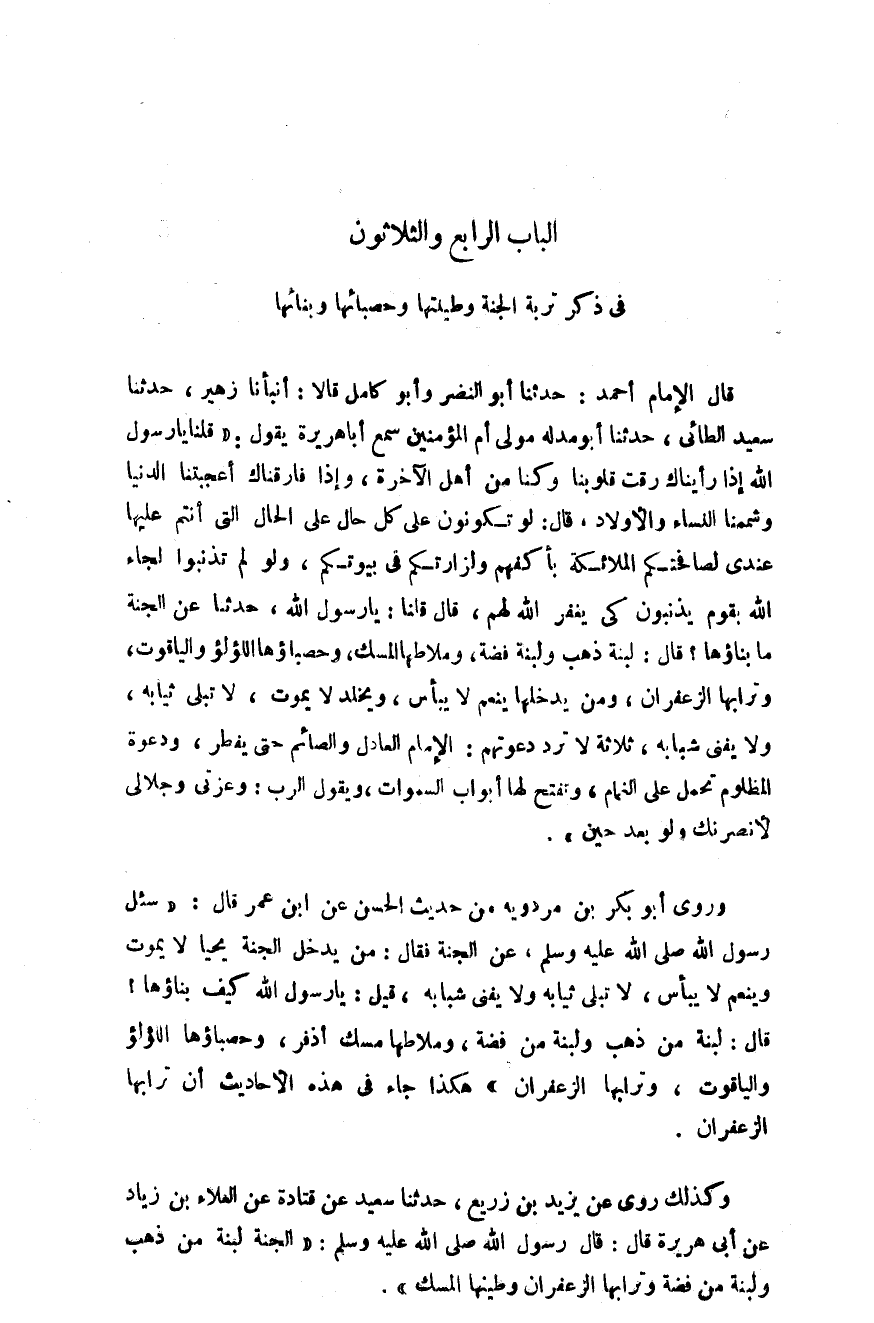 الباب الرابع والثلاثون
فى ذكر تربة الجنة وطينتها وحصبائها وبنائها
قال الإمام أحمد : حدثنا أبو النضر وأبو كامل قالا : أنبأنا زهير ، حدثنا
سعيد الطائى ، حدثنا أبو مدله مولى أم المؤمنين سمع أبا هريرة يقول : « قلنا يا رسول
الله إذا رأيناك رقت قلوبنا وكنا من أهل الآخرة ، وإذا فارقناك أعجبتنا الدنيا
وشممنا النساء والأولاد ، قال : لو تكونون على كل حال على الحال التى أنتم عليها
عندى لصافحتكم الملائكة بأكفهم ولزارتكم فى بيوتكم ، ولو لم تذنبوا لجاء
الله بقوم يذنبون كى يغفر الله لهم ، قال قلنا : يارسول الله ، حدثنا عن الجنة
ما بناؤها ؟ قال : لبنة ذهب ولبنة فضة ، وملاطها المسك ، وحصباؤها اللؤلؤ والياقوت ،
وترابها الزعفران ، ومن يدخلها ينعم لا يبأس ، ويخلد لا يموت ، لا تبلى ثيابه ،
ولا يفنى شبابه ، ثلاثة لا ترد دعوتهم : الإمام العادل والصائم حتى يفطر ، ودعوة
المظلوم تحمل على الغمام ، وتفتح لها أبواب السموات ، ويقول الرب : وعزتى وجلالى
لأنصرنك ولو بعد حين » .
وروى أبو بكر بن مردويه من حديث الحسن عن ابن عمر قال : « سئل
رسول الله صلى الله عليه وسلم ، عن الجنة فقال : من يدخل الجنة يحيا لا يموت
وينعم لا يبأس ، لا تبلى ثيابه ولا يفنى شبابه ، قيل : يارسول الله كيف بناؤها ؟
قال : لبنة من ذهب ولبنة من فضة ، وملاطها مسك أذفر ، وحصباؤها اللؤلؤ
والياقوت ، وترابها الزعفران » هكذا جاء فى هذه الأحاديث أن ترابها
الزعفران .
وكذلك روى عن يزيد بن زريع ، حدثنا سعيد عن قتادة عن العلاء بن زياد
عن أبى هريرة قال : قال رسول الله صلى الله عليه وسلم : « الجنة لبنة من ذهب
ولبنة من فضة وترابها الزعفران وطينها المسك » .